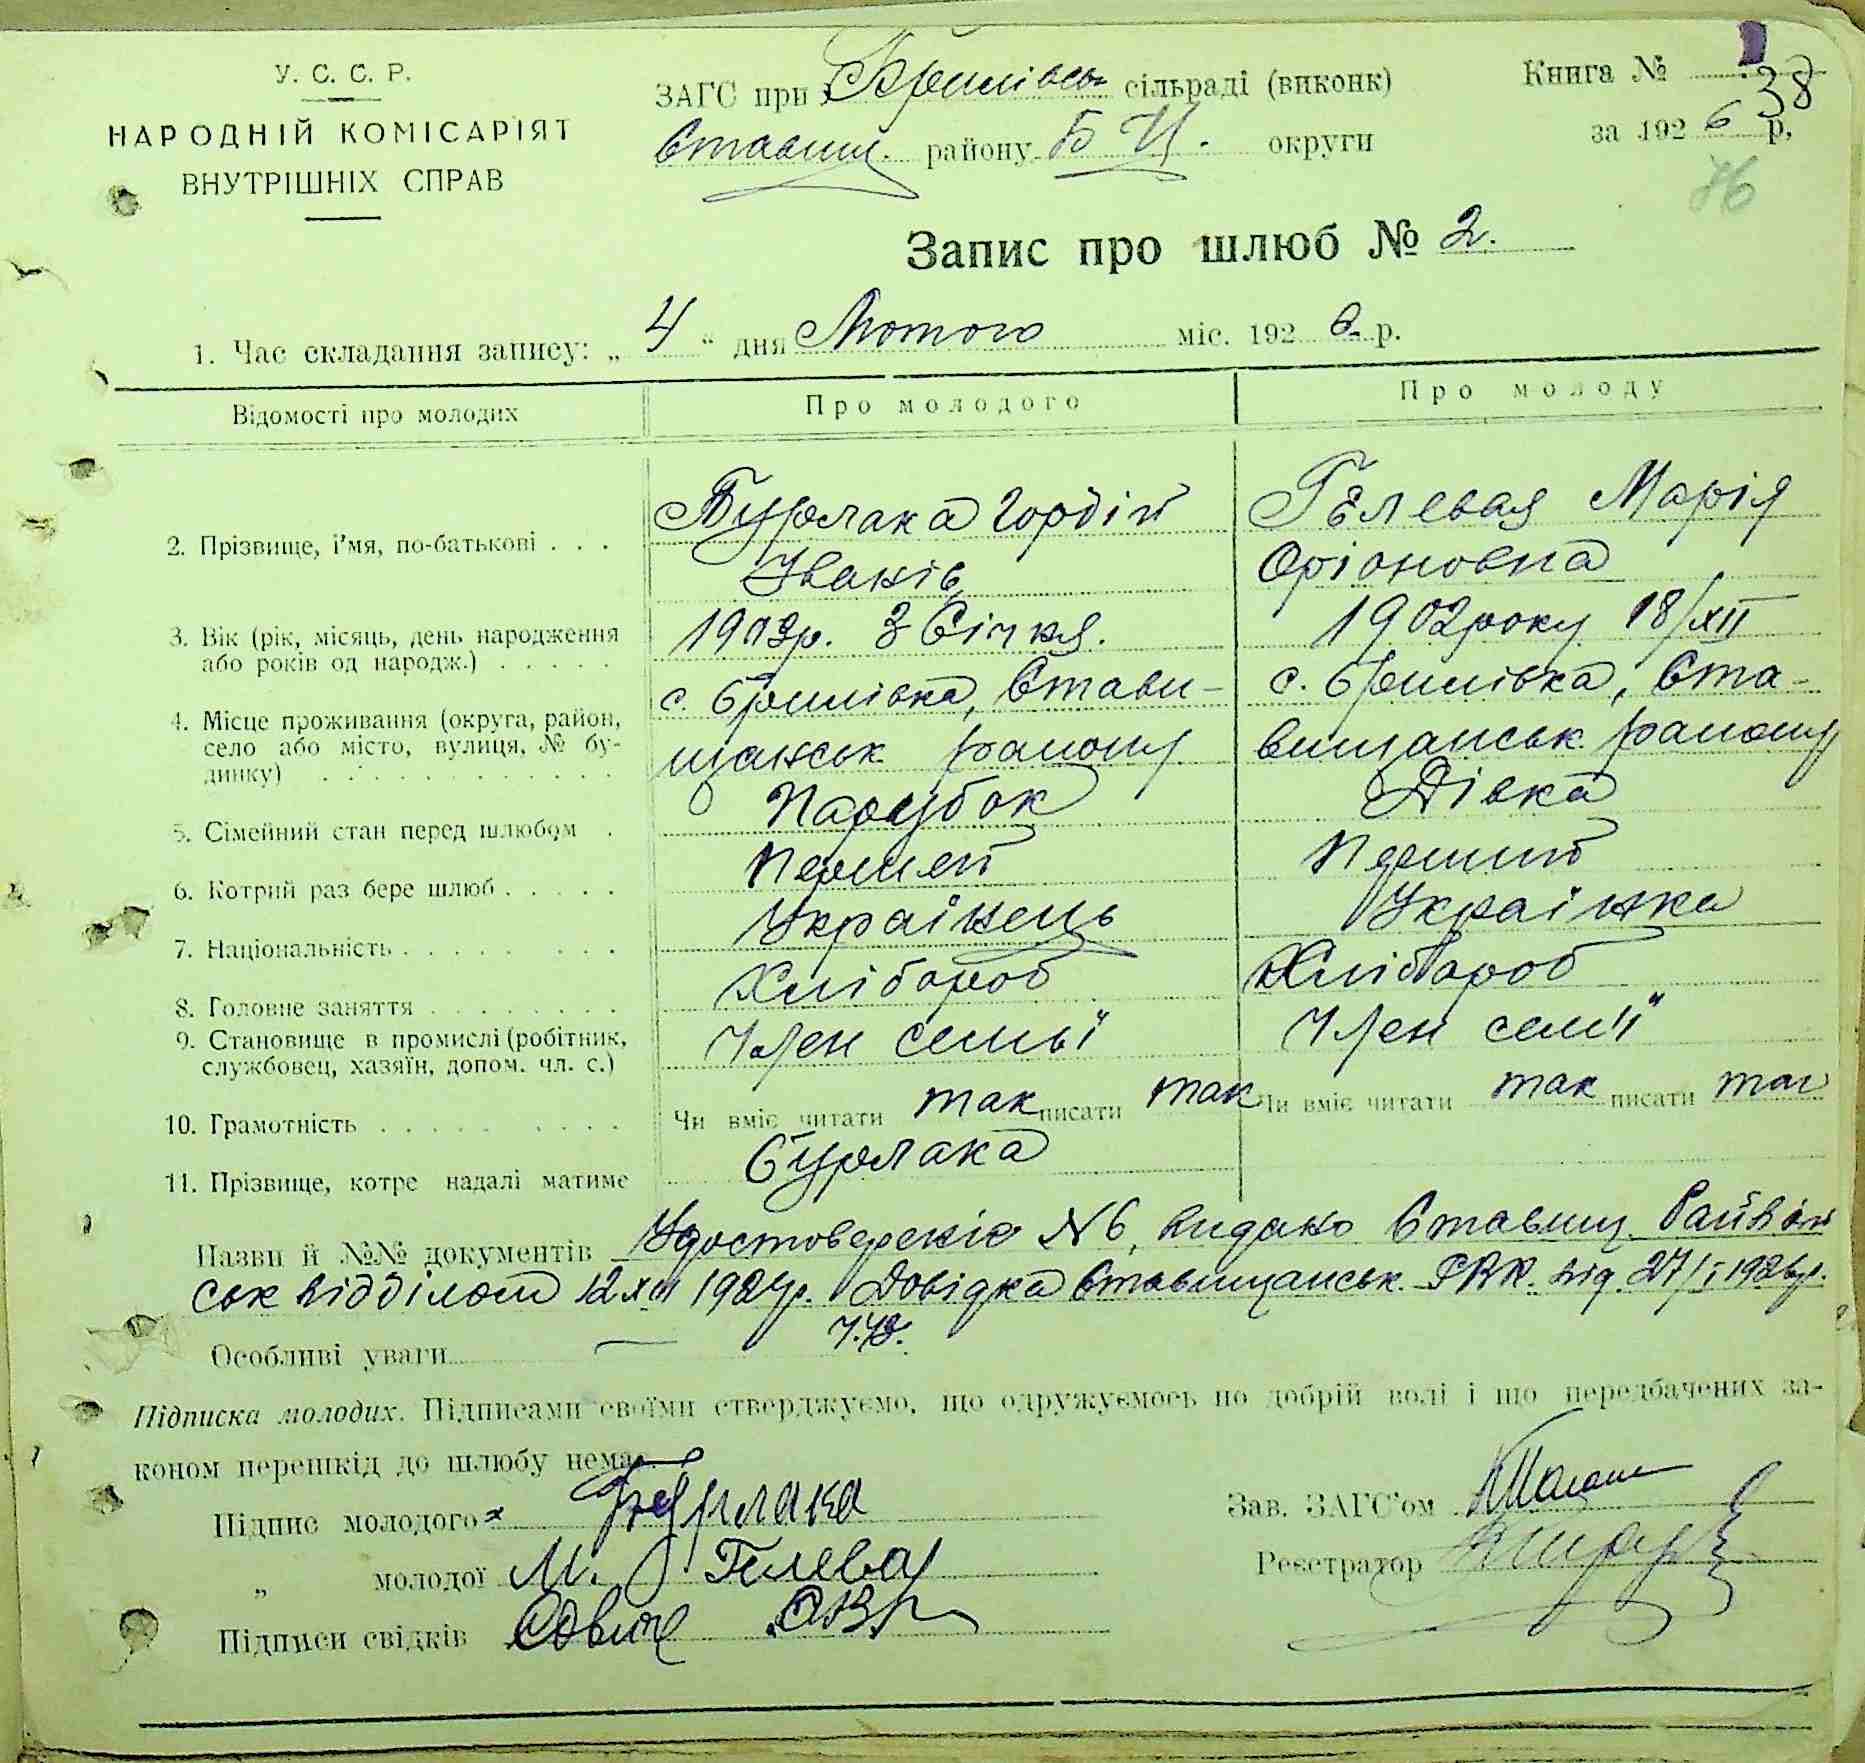 У. С. С. Р.
НАРОДНІЙ КОМІСАРІЯТ
ВНУТРІШНІХ СПРАВ
ЗАГС при Брилівськ сільраді (виконк)
Ставищ. району Б Ц. округи
Книга №
38
за 1926 р,
76
Запис про шлюб № 2.
1. Час складання запису: „ 4 " дня Лютого міс. 1926 р.
Відомості про молодих Про молодого Про молоду
2. Прізвище, і'мя, по-батькові . . . Бурлака Гордій Гелевая Марія
Іванів Оріоновна
3. Вік (рік, місяць, день народження 1903р. 3 Січня. 1902 року 18/XII
або років од народж.) . . . . .
4. Місце проживання (округа, район, с. Брилівка, Стави- с. Брилівка, Ста-
село або місто, вулиця, № бу- щанськ району вищанськ району
динку) . . . . . . . . . . . .
5. Сімейний стан перед шлюбом . Парубок Дівка
6. Котрий раз бере шлюб . . . . . Першей Перший
7. Національність . . . . . . . . Українець Українка
8. Головне заняття . . . . . . . . Хлібороб Хлібороб
9. Становище в промислі (робітник, Член семьї Член сем'ї
службовец, хазяїн, допом. чл. с.)
10. Грамотність . . . . . . . . . Чи вміє читати так писати так Чи вміє читати так писати так
11. Прізвище, котре надалі матиме Бурлака
Назви й №№ документів Удостоверенія №6, видано Ставищ. Райвій
ськ відділом 12 1924р. Довідка Ставищанськ. РВК. від. 27/I 1926р.
Особливі уваги —
Підписка молодих. Підписами своїми стверджуємо, що одружуємось по добрій волі і що передбачених за-
коном перешкід до шлюбу немає.
Підпис молодого Бурлака
„ молодої М. Гелева
Підписи свідків
Зав. ЗАГС'ом
Реєстратор